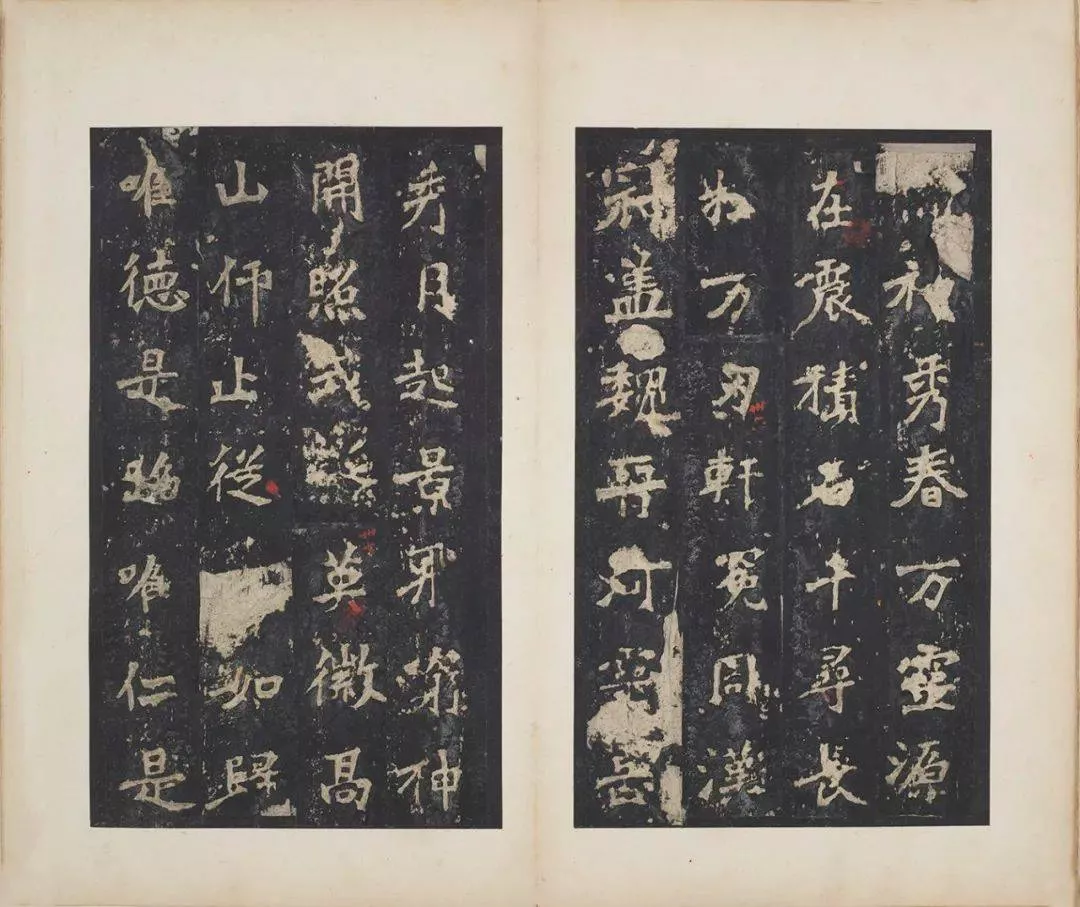 神秀春方靈源
在震積石千尋長
松万刃軒冕周漢
冠盖魏晉河靈岳
秀月起景飛窮神
開照式誕英徽高
山仰止從如歸
唯德是蹈唯仁是